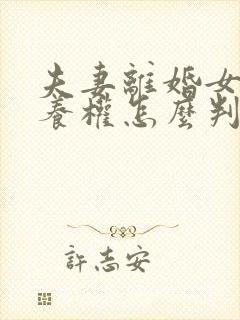 夫妻離婚女
養權怎麼判
許志安